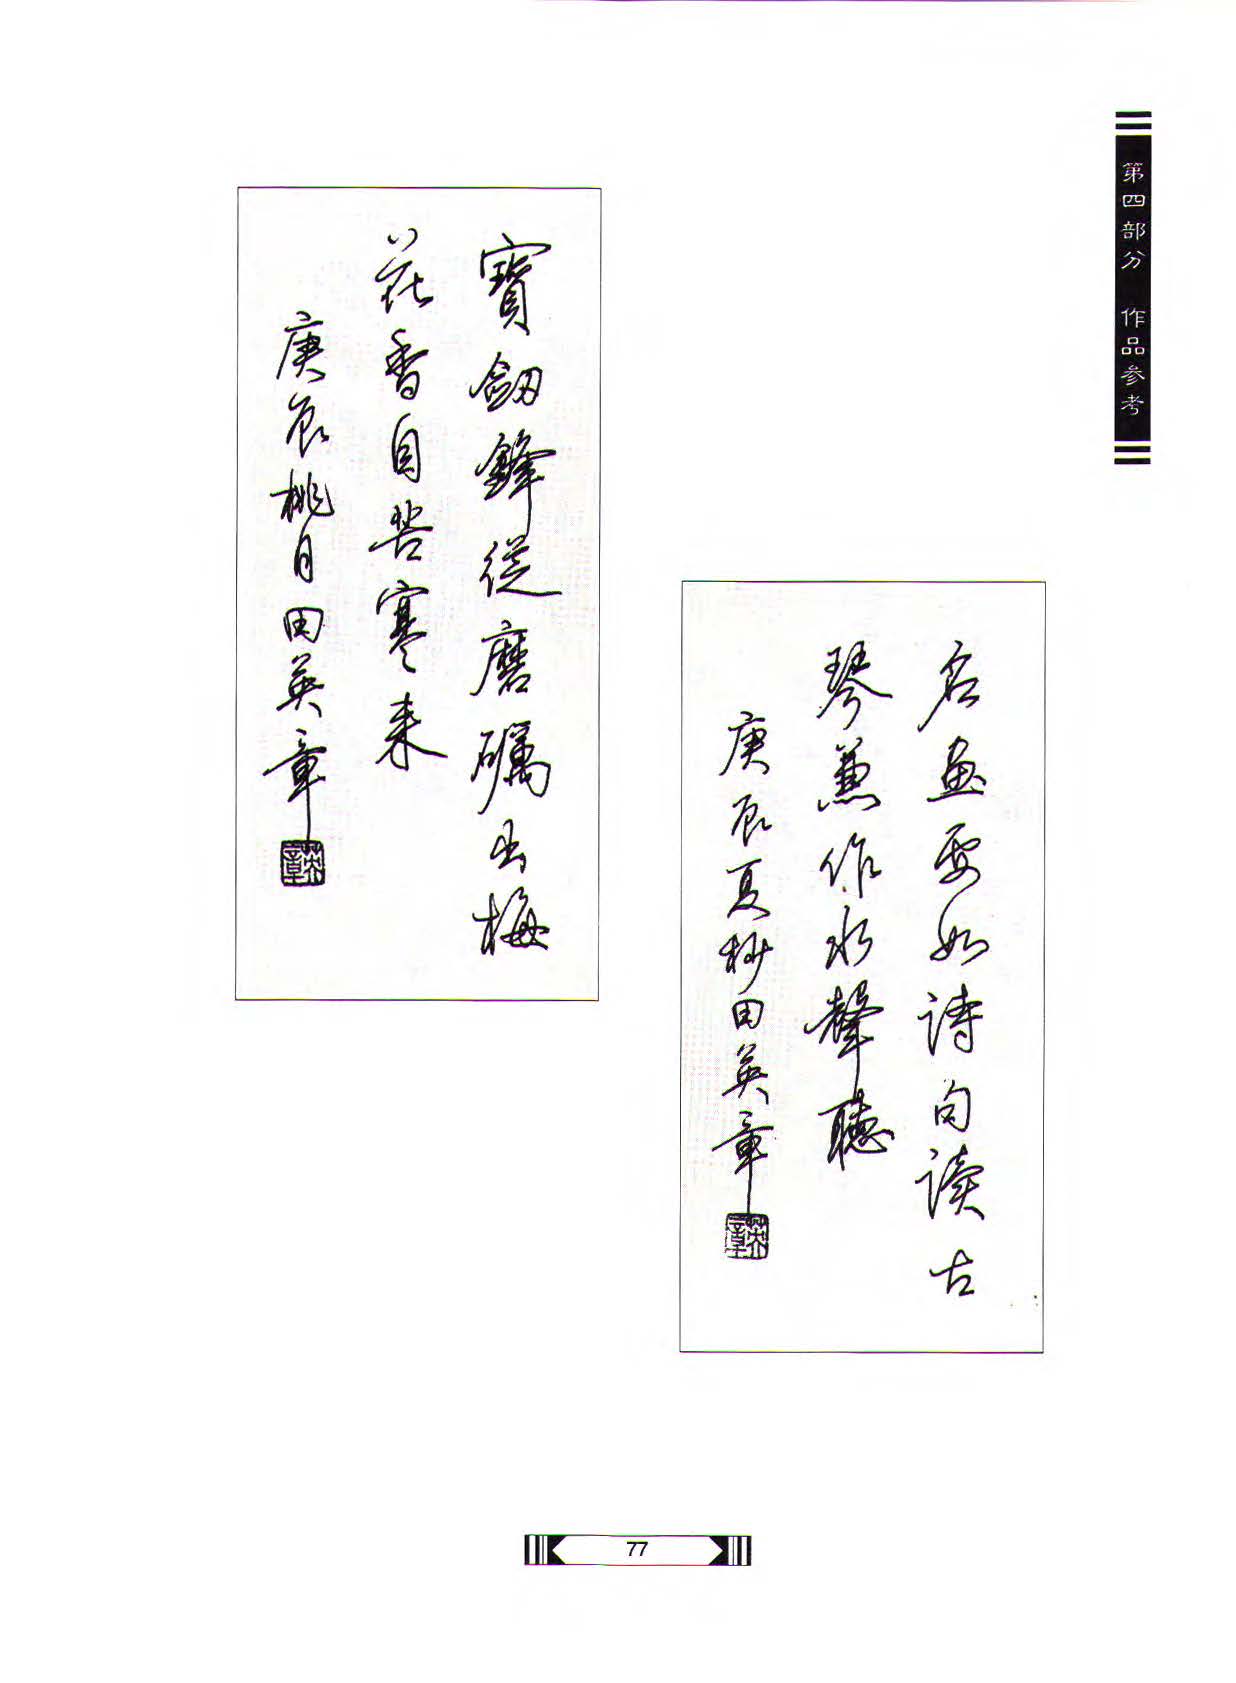 第四部分 作品参考
名畫要如詩句讀古
琴兼作水聲聽
庚辰夏杪田英章
英章
寶劒鋒從磨礪出梅
花香自苦寒来
庚辰桃月田英章
英章
77